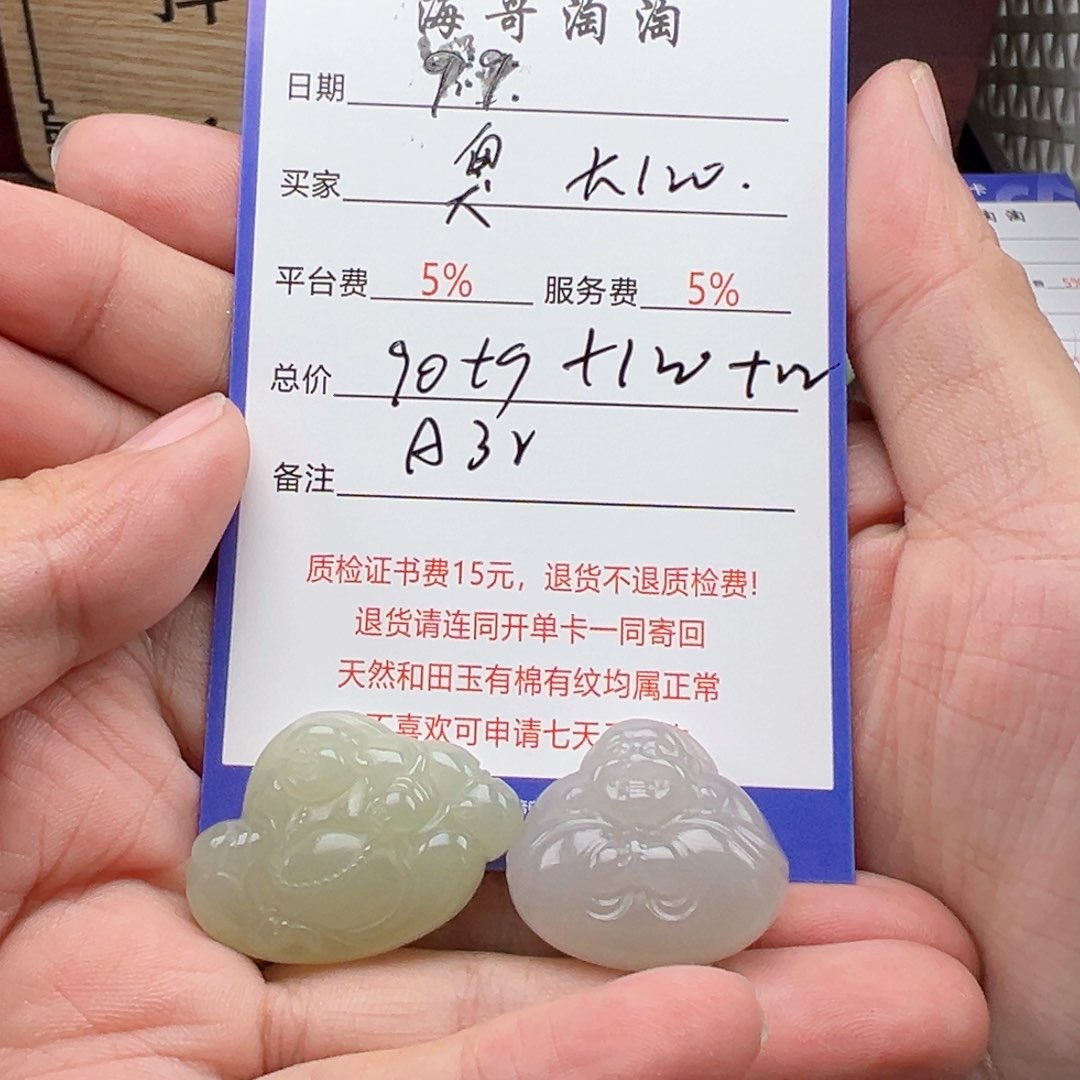 海哥淘淘
日期 9.9.
买家
平台费 5% 服务费 5%
总价 90+9 +1w+w
A3Y
备注
质检证书费15元，退货不退质检费!
退货请连同开单卡一同寄回
天然和田玉有棉有纹均属正常
不喜欢可申请七天